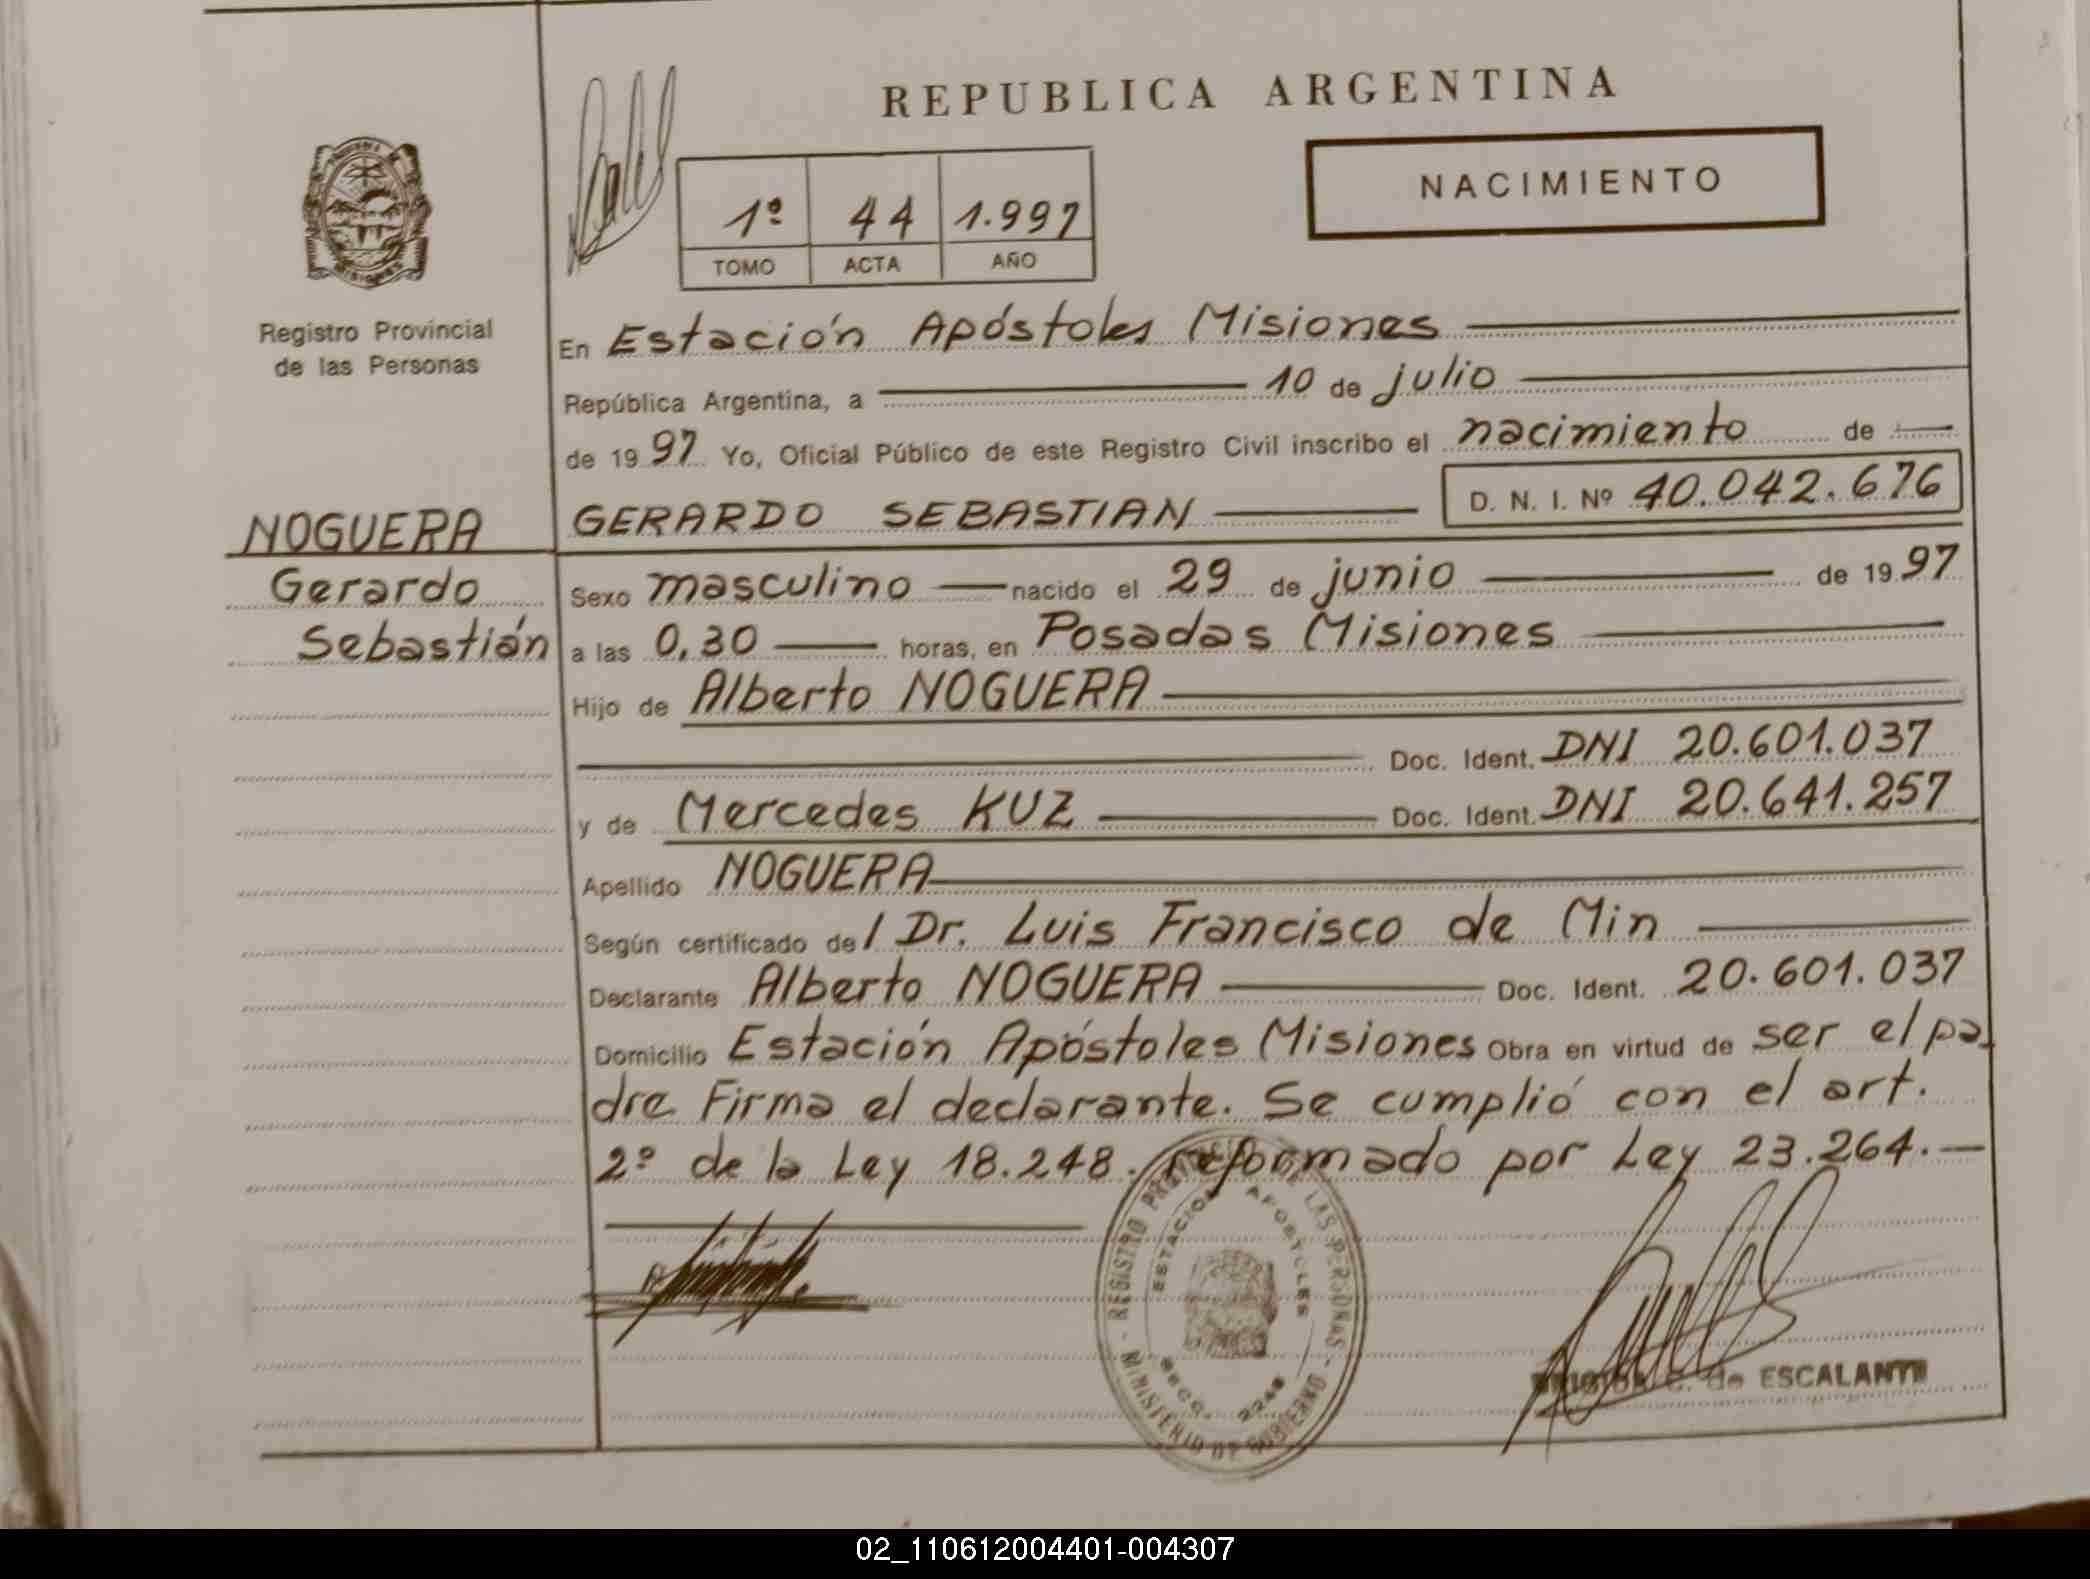 REPUBLICA ARGENTINA
NACIMIENTO
1º 44 1.997
TOMO ACTA AÑO
MISIONES
Registro Provincial
de las Personas
NOGUERA
Gerardo
Sebastián
En Estación Apóstoles Misiones
República Argentina, a 10 de julio
de 1997 Yo, Oficial Público de este Registro Civil inscribo el nacimiento de
GERARDO SEBASTIAN D. N. I. Nº 40.042.676
Sexo masculino nacido el 29 de junio de 1997
a las 0,30 horas, en Posadas Misiones
Hijo de Alberto NOGUERA
Doc. Ident. DNI 20.601.037
y de Mercedes KUZ Doc. Ident. DNI 20.641.257
Apellido NOGUERA
Según certificado de/ Dr. Luis Francisco de Min
Declarante Alberto NOGUERA Doc. Ident. 20.601.037
Domicilio Estación Apóstoles Misiones Obra en virtud de ser el pa_
dre Firma el declarante. Se cumplió con el art.
2º de la Ley 18.248. reformado por Ley 23.264.—
REGISTRO PROVINCIAL DE LAS PERSONAS
MINISTERIO DE GOBIERNO
ESTACION APOSTOLES
C. de ESCALANTE
02_110612004401-004307